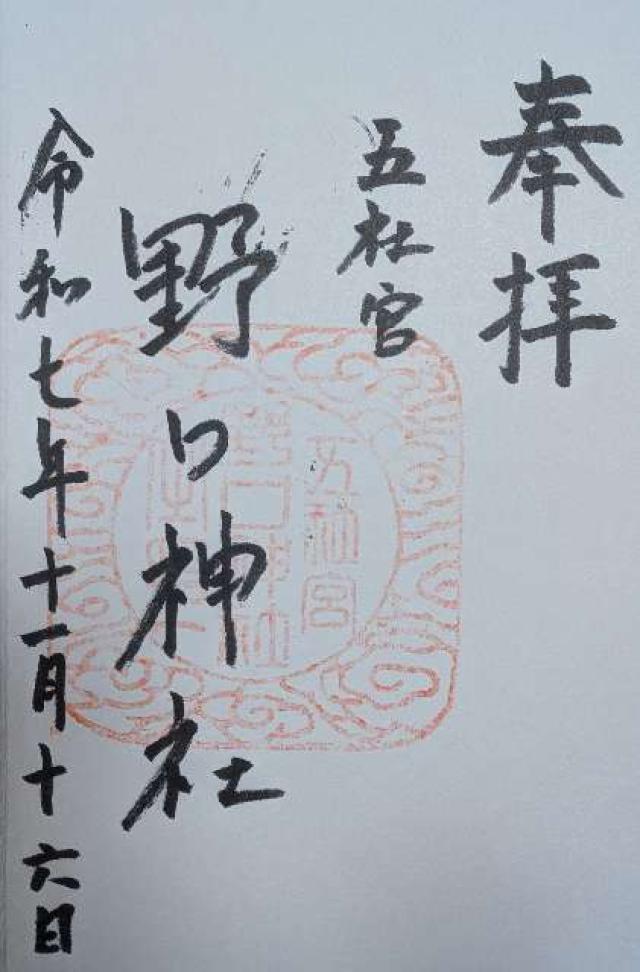 奉拝
五社宮
野口神社
令和七年十一月十六日
五社宮